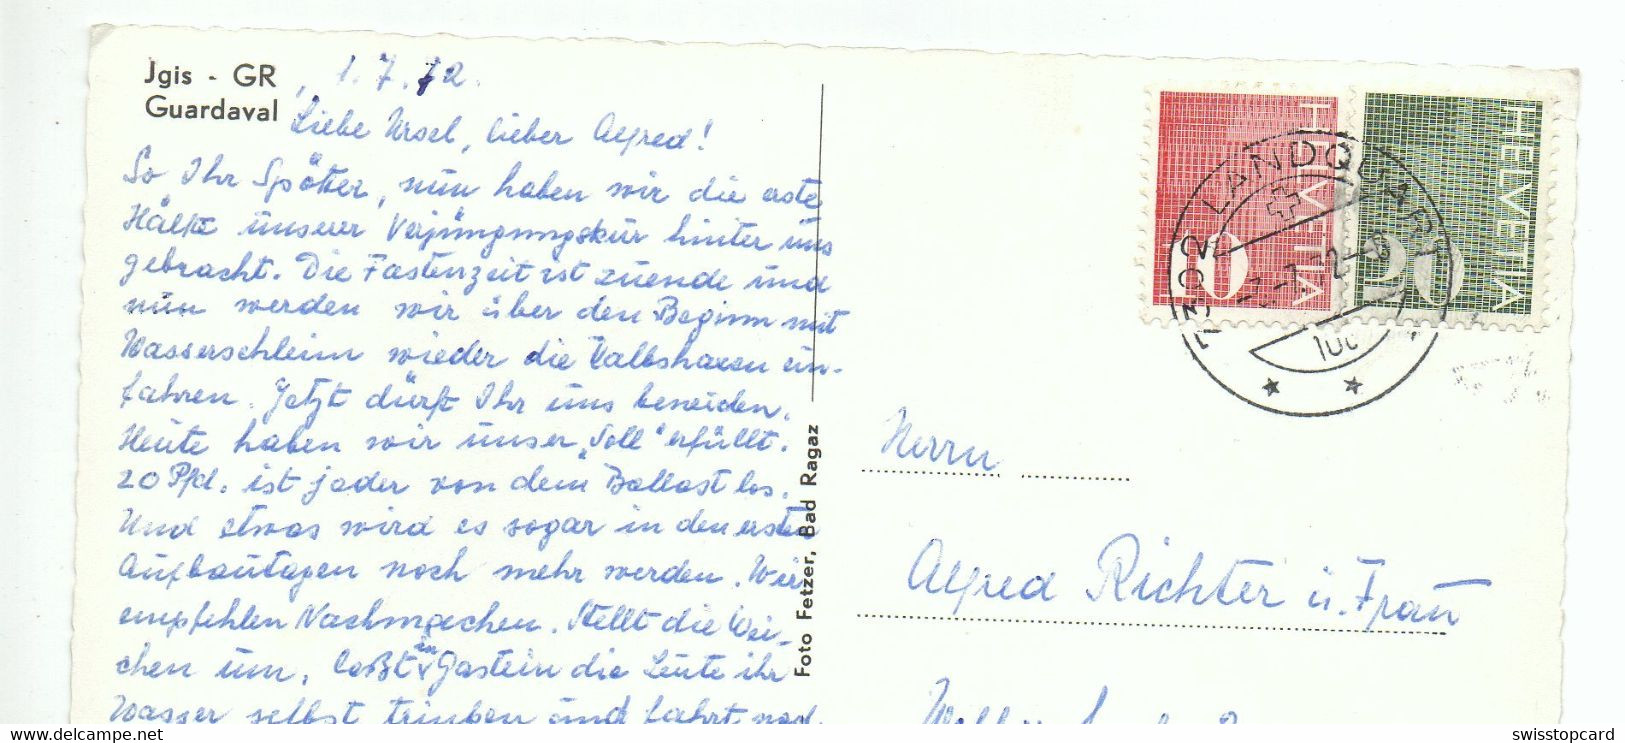 Jgis - GR
Guardaval
, 1.7.72.
Liebe Ursel, lieber Alfred!
So Ihr Spötter, nun haben wir die erste
Hälfte unserer Verjüngungskur hinter uns
gebracht. Die Fastenzeit ist zuende und
nun werden wir über den Beginn mit
Wasserschleim wieder die Kalbshaxen ein-
fahren. Jetzt dürft Ihr uns beneiden.
Heute haben wir unser „Soll“ erfüllt.
20 Pfd. ist jeder von dem Ballast los.
Und etwas wird es sogar in den ersten
Aufbautagen noch mehr werden. Wir
empfehlen Nachmachen. Stellt die Wei-
chen um, laßt in Gastein die Leute ihr
Wasser selbst trinken und fahrt nach
Foto Fetzer, Bad Ragaz
HELVETIA
HELVETIA
10
HELVETIA
20
7302 LANDQUART
Herrn
Alfred Richter u. Frau
swisstopcard